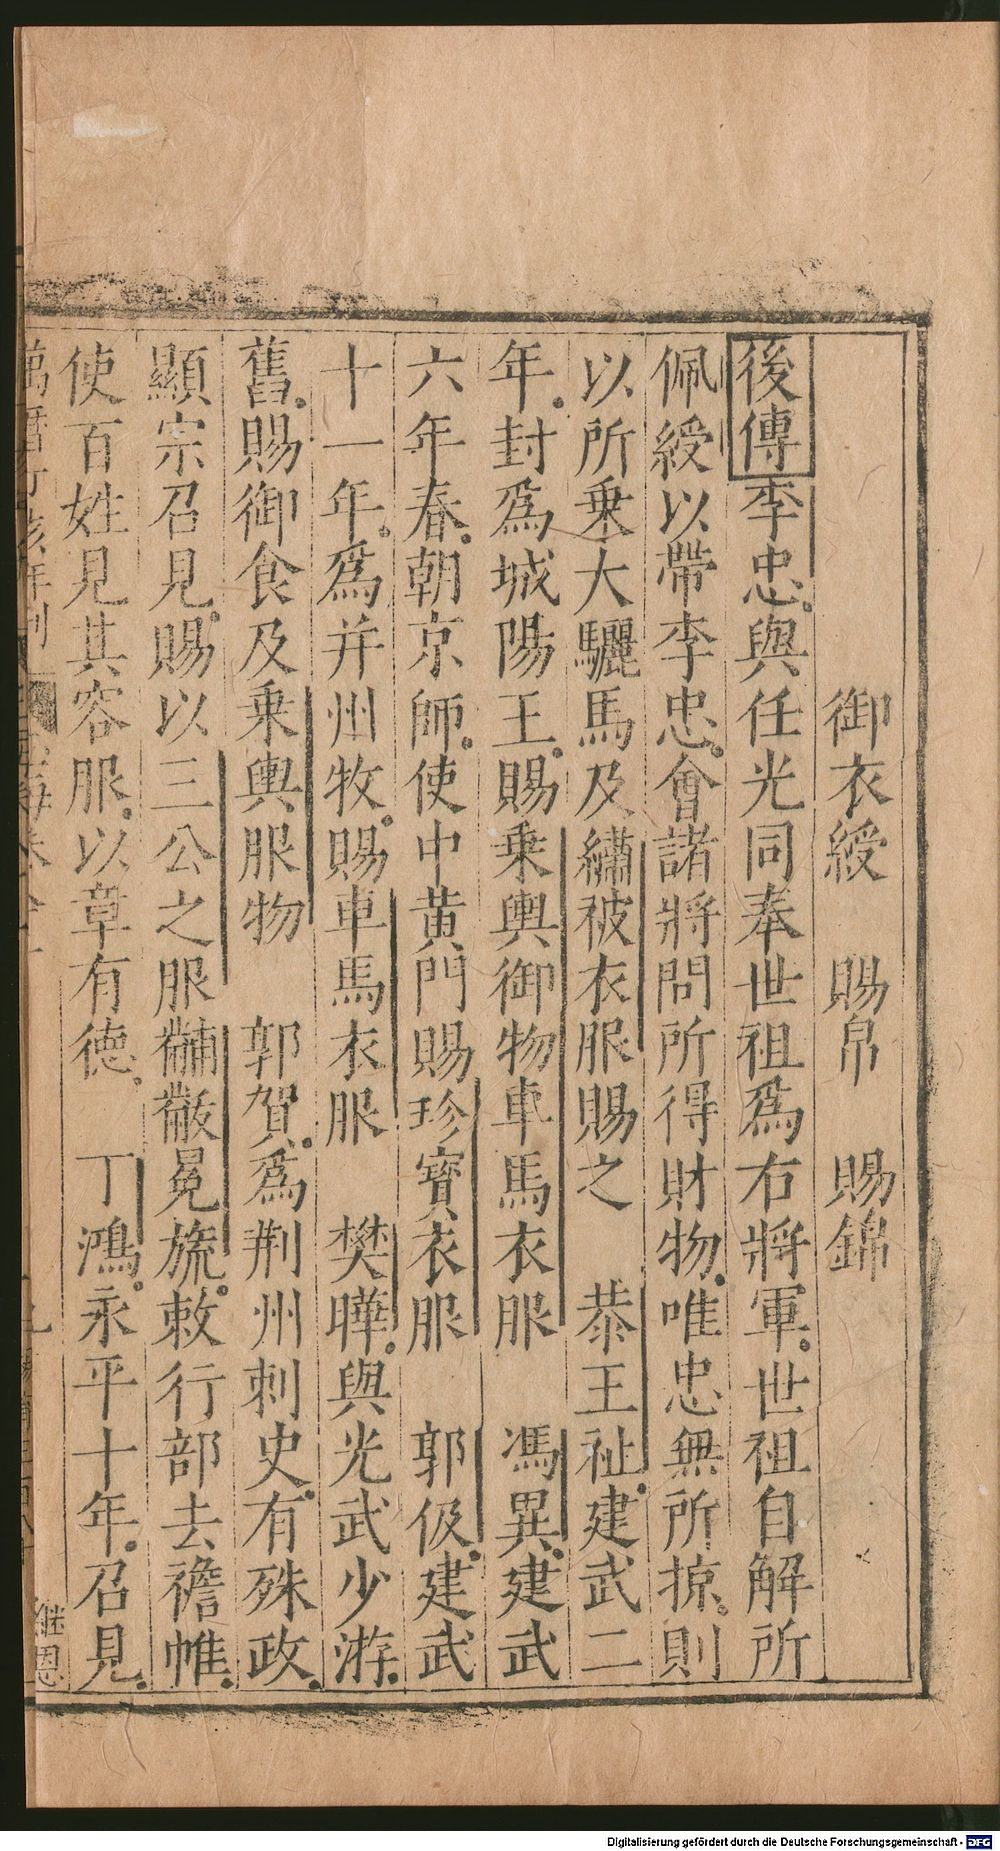 御衣綬 賜帛 賜錦
後傳李忠與任光同奉世祖爲右將軍世祖自解所
佩綬以帶李忠會諸將問所得財物唯忠無所掠則
以所乗大驪馬及繡被衣服賜之 恭王祉建武二
年封爲城陽王賜乗輿御物車馬衣服 馮異建武
六年春朝京師使中黄門賜珍寳衣服 郭伋建武
十一年爲并州牧賜車馬衣服 樊曄與光武少游
舊賜御食及乗輿服物 郭賀爲荆州刺史有殊政
顯宗召見賜以三公之服黼黻冕旒敕行部去襜帷
使百姓見其容服以章有德 丁鴻永平十年召見
萬曆丁亥年刊
继恩
Digitalisierung gefördert durch die Deutsche Forschungsgemeinschaft - DFG